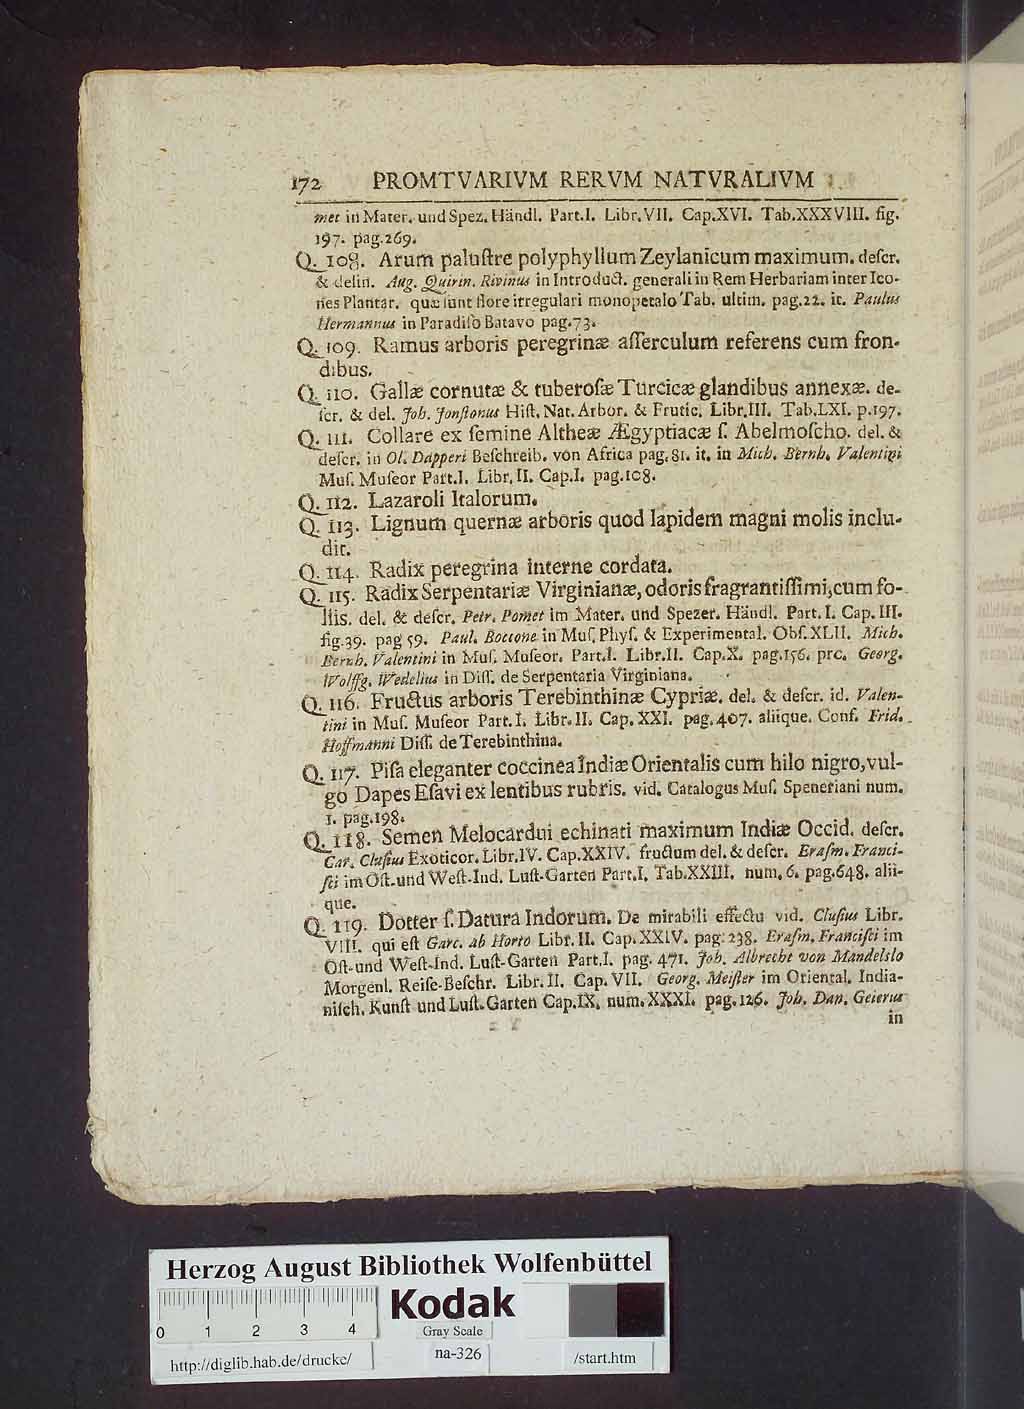 172 PROMTVARIVM RERVM NATVRALIVM
met in Mater. und Spez. Händl. Part.I. Libr.VII. Cap.XVI. Tab.XXXVIII. fig.
197. pag.269.
Q. 108. Arum paluſtre polyphyllum Zeylanicum maximum. deſcr.
& delin. Aug. Quirin. Rivinus in Introduct. generali in Rem Herbariam inter Ico-
nes Plantar. quæ ſunt flore irregulari monopetalo Tab. ultim. pag.22. it. Paulus
Hermannus in Paradiſo Batavo pag.73.
Q. 109. Ramus arboris peregrinæ aſſerculum referens cum fron-
dibus.
Q. 110. Gallæ cornutæ & tuberoſæ Turcicæ glandibus annexæ. de-
ſcr. & del. Joh. Jonſtonus Hiſt. Nat. Arbor. & Frutic. Libr.III. Tab.LXI. p.197.
Q. 111. Collare ex ſemine Altheæ Ægyptiacæ ſ. Abelmoſcho. del. &
deſcr. in Ol. Dapperi Beſchreib. von Africa pag.81. it. in Mich. Bernh. Valentini
Muſ. Muſeor Part.I. Libr.II. Cap.I. pag.108.
Q. 112. Lazaroli Italorum.
Q. 113. Lignum quernæ arboris quod lapidem magni molis inclu-
dit.
Q. 114. Radix peregrina interne cordata.
Q. 115. Radix Serpentariæ Virginianæ, odoris fragrantiſſimi, cum fo-
liis. del. & deſcr. Petr. Pomet im Mater. und Spezer. Händl. Part. I. Cap. III.
fig.39. pag 59. Paul. Boccone in Muſ. Phyſ. & Experimental. Obſ. XLII. Mich.
Bernh. Valentini in Muſ. Muſeor. Part.I. Libr.II. Cap.X. pag.156. prc. Georg.
Wolffg. Wedelius in Diſſ. de Serpentaria Virginiana.
Q. 116. Fructus arboris Terebinthinæ Cypriæ. del. & deſcr. id. Valen-
tini in Muſ. Muſeor Part.I. Libr.II. Cap. XXI. pag.407. aliique. Conf. Frid.
Hoffmanni Diſſ. de Terebinthina.
Q. 117. Piſa eleganter coccinea Indiæ Orientalis cum hilo nigro, vul-
go Dapes Eſavi ex lentibus rubris. vid. Catalogus Muſ. Speneriani num.
1. pag.198.
Q. 118. Semen Melocardui echinati maximum Indiæ Occid. deſcr.
Car. Cluſius Exoticor. Libr.IV. Cap.XXIV. fructum del. & deſcr. Eraſm. Franci-
ſci im Oſt- und Weſt-Ind. Luſt-Garten Part.I. Tab.XXIII. num. 6. pag.648. alii-
que.
Q. 119. Dotter ſ. Datura Indorum. De mirabili effectu vid. Cluſius Libr.
VIII. qui eſt Garc. ab Horto Libr. II. Cap.XXIV. pag. 238. Eraſm. Franciſci im
Oſt- und Weſt-Ind. Luſt-Garten Part.I. pag. 471. Joh. Albrecht von Mandelslo
Morgenl. Reiſe-Beſchr. Libr. II. Cap. VII. Georg. Meiſter im Oriental. India-
niſch. Kunſt und Luſt-Garten Cap.IX. num.XXXI. pag.126. Joh. Dan. Geierus
in
Herzog August Bibliothek Wolfenbüttel
Kodak
0 1 2 3 4
Gray Scale
http://diglib.hab.de/drucke/ na-326 /start.htm